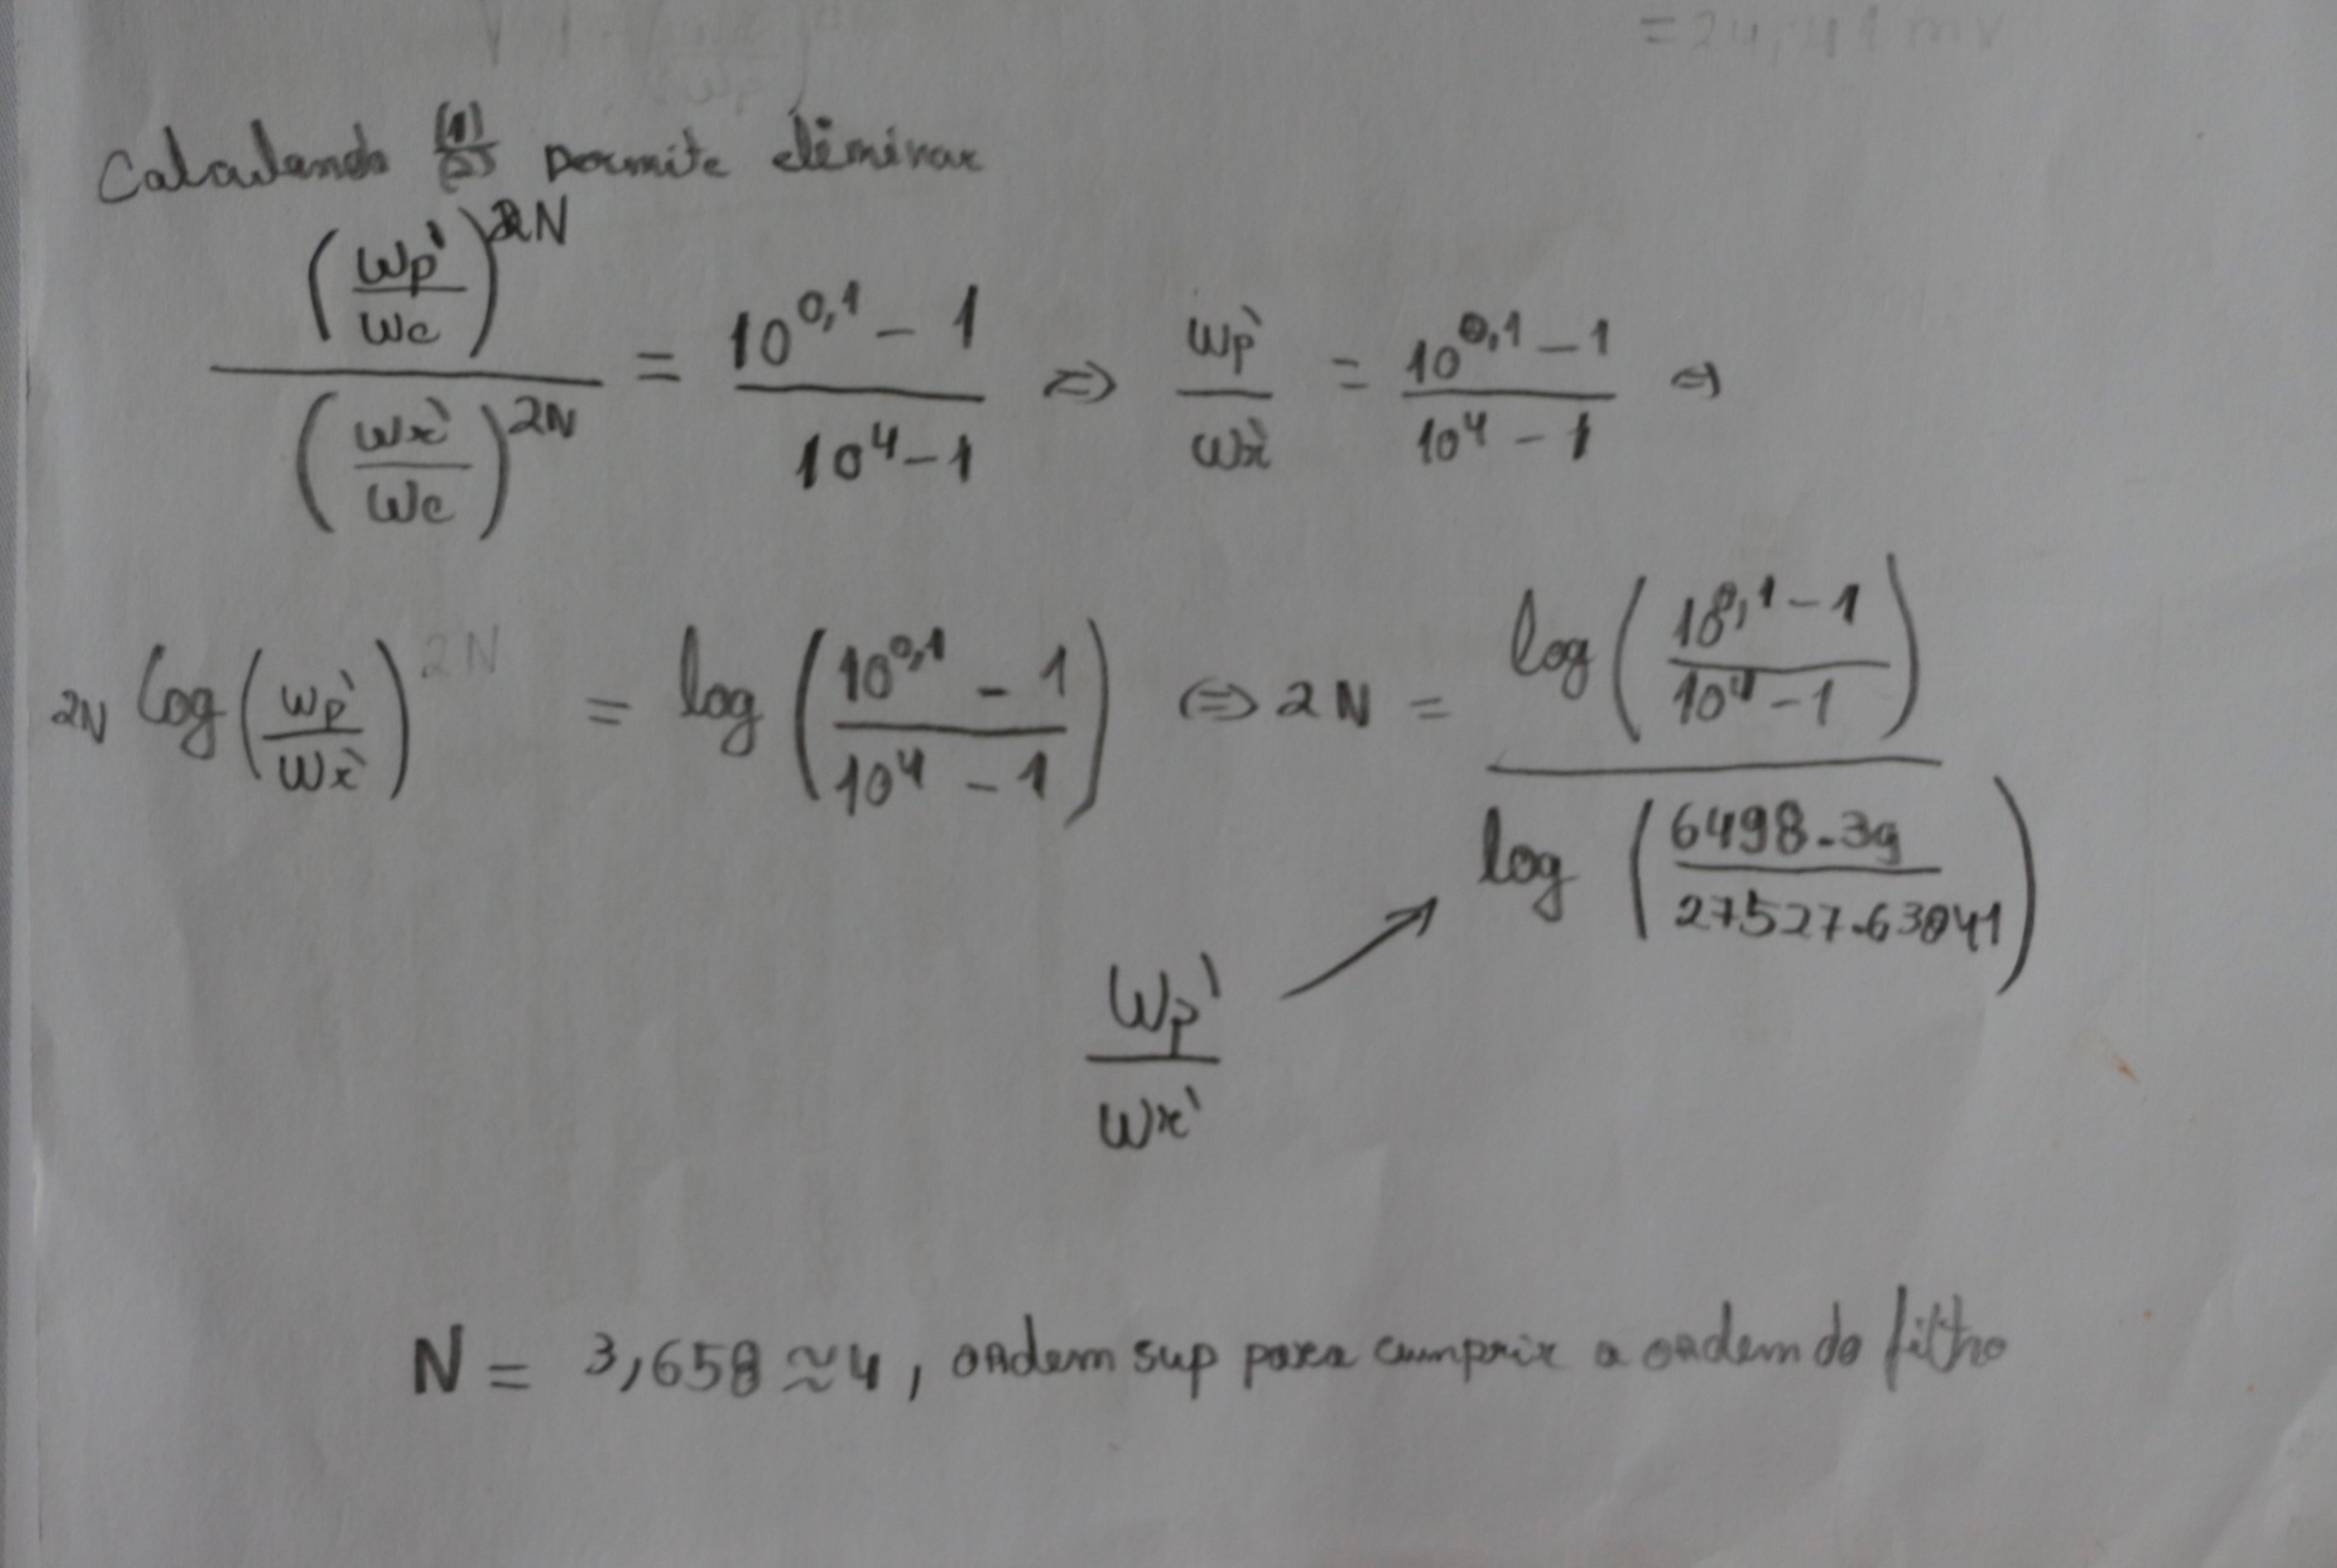 = 24,211 mV
Calculando (1)/(2) permite eliminar
(wp'/wc)^2N / (wx'/wc)^2N = (10^0,1 - 1)/(10^4 - 1) => wp'/wx' = (10^0,1 - 1)/(10^4 - 1) ⇔
2N log(wp'/wx')^2N = log((10^0,1 - 1)/(10^4 - 1)) ⇔ 2N = log((10^0,1 - 1)/(10^4 - 1)) / log(6498.39/27527.63041)
wp'/wx'
N = 3,658 ≈ 4, ordem sup para cumprir a ordem do filtro